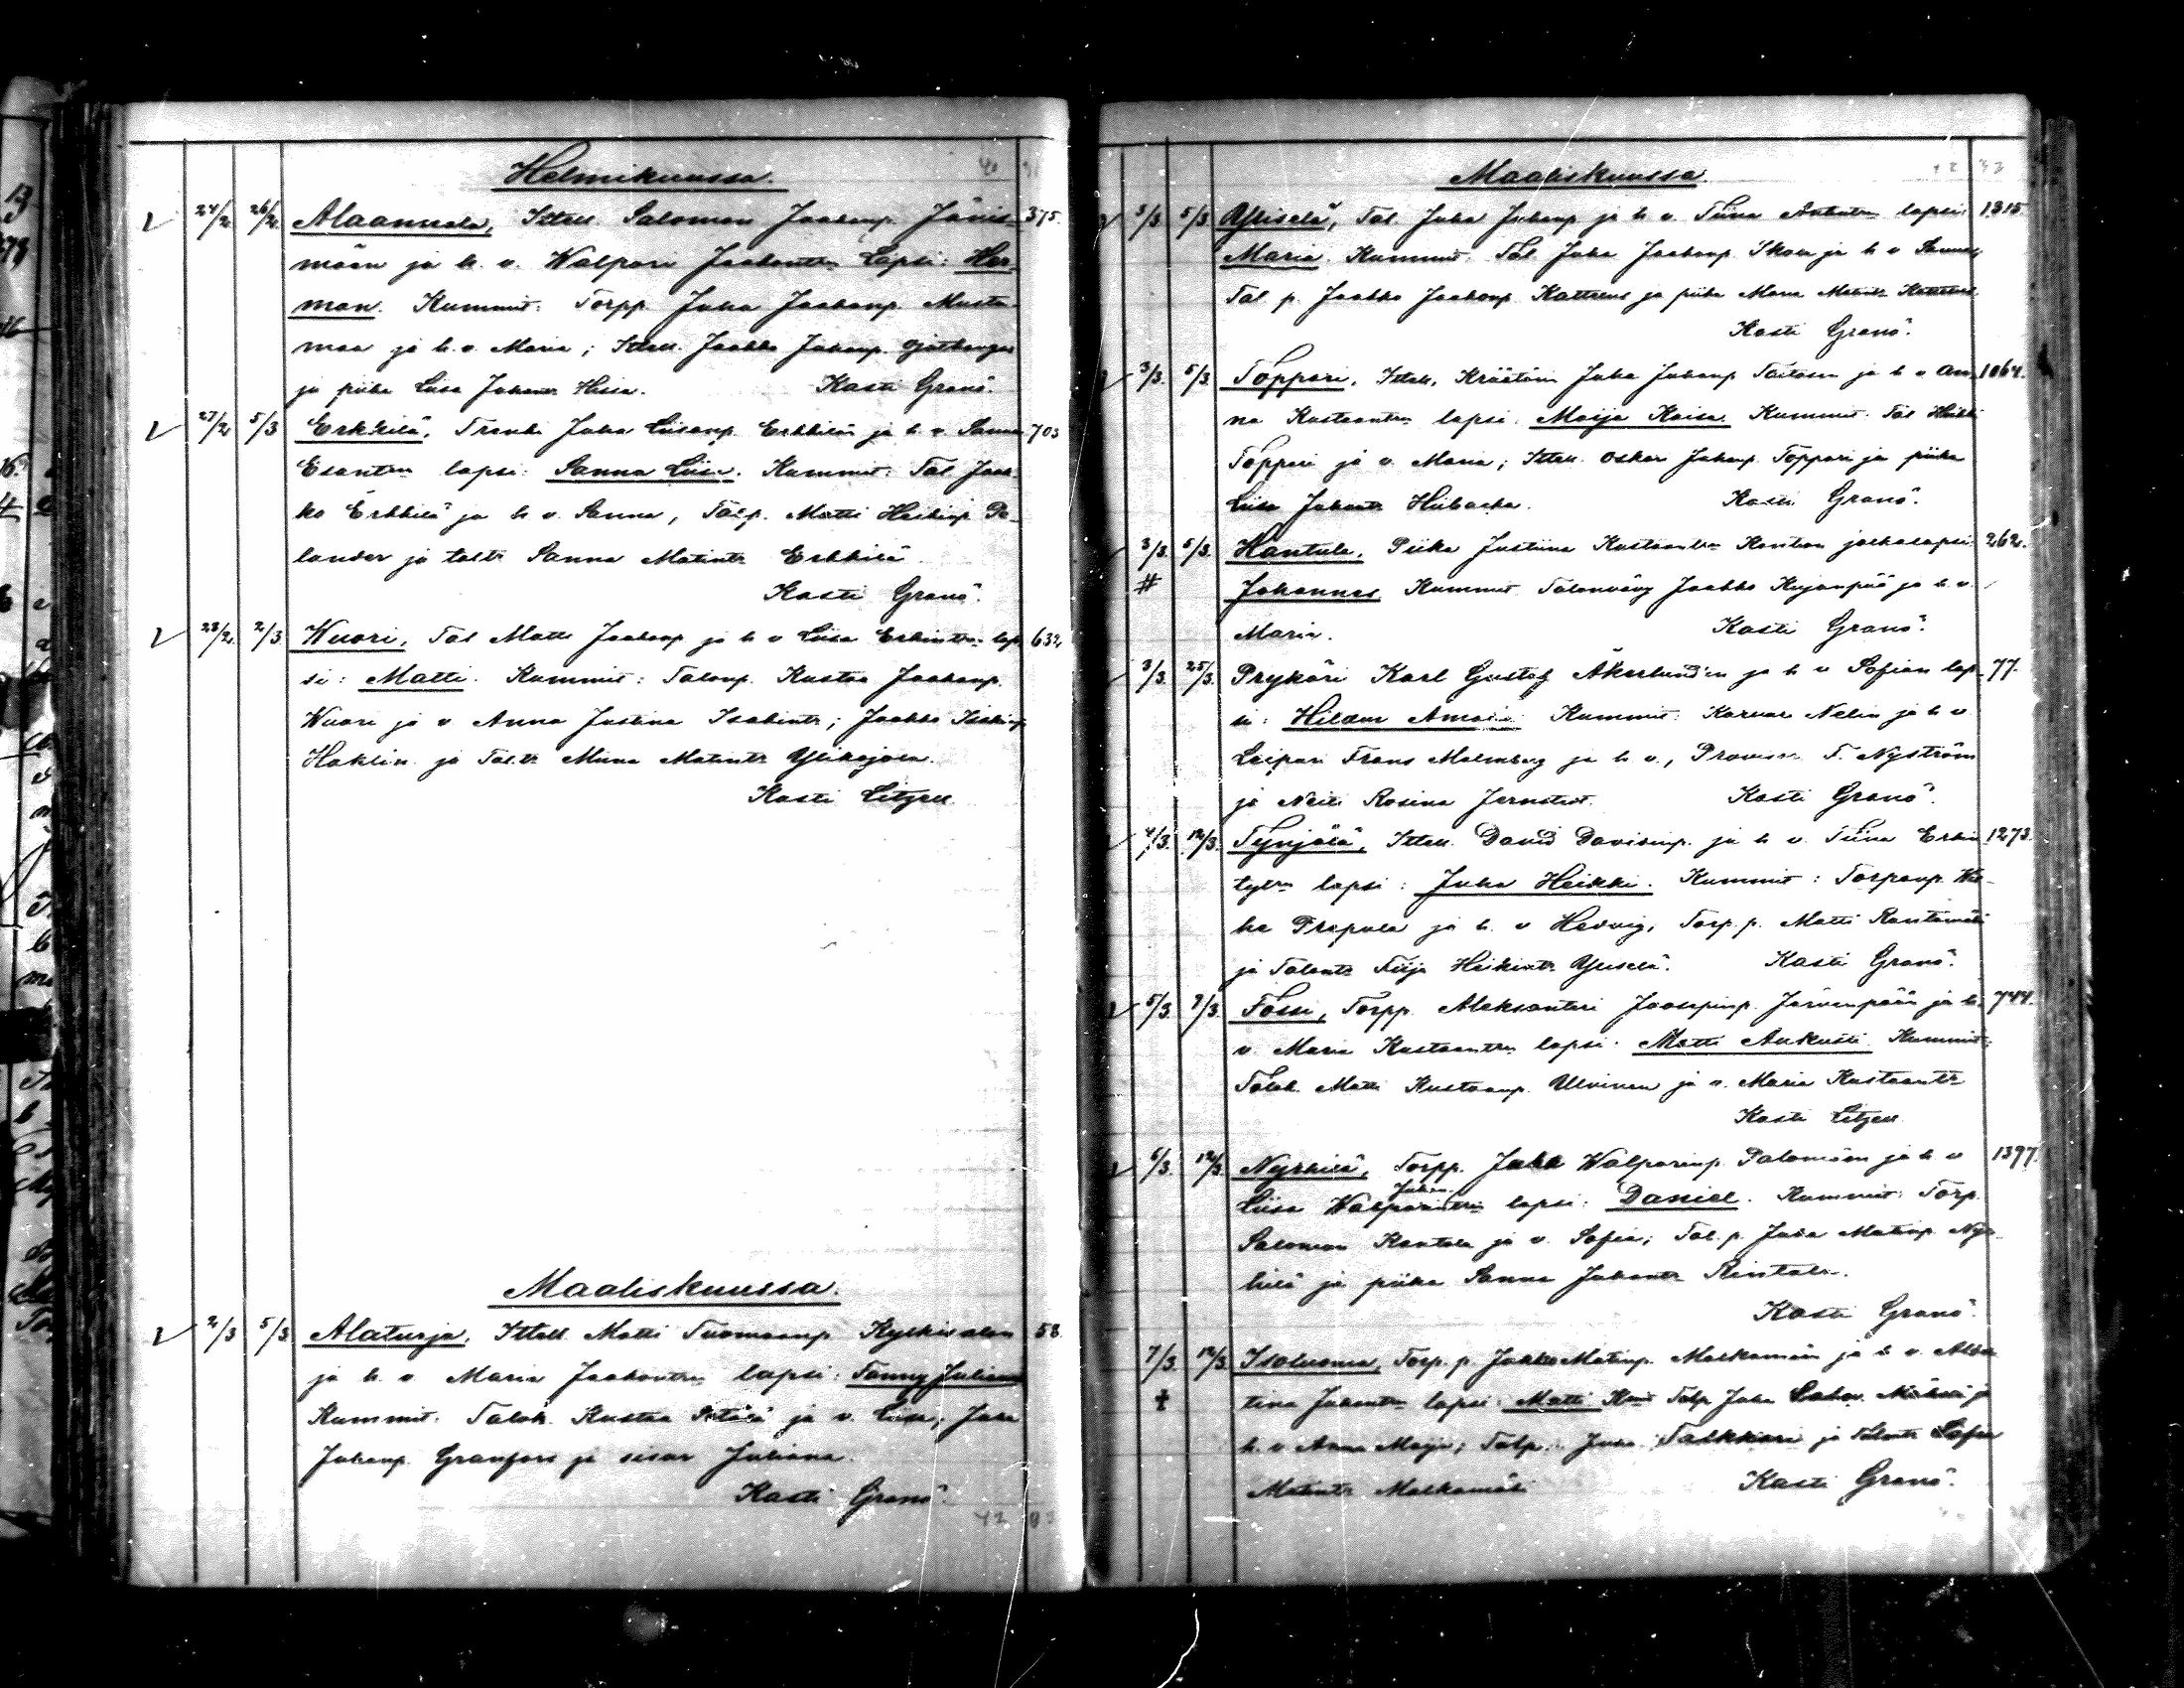 Helmikuussa.
24/2 26/2 Alaannala, Ittell. Salomon Jaakonp. Jänis- 375.
mäen ja h. v. Walpuri Jaakontr. Lapsi: Her-
man. Kummit: Torpp. Juha Jaakonp. Musta-
maa ja h. v. Maria; Ittell. Jaakko Juhanp.
ja piika Liisa Juhantr. Hissa. Kasti Granö.
27/2 5/3 Erkkilä, Juha Liisanp. Erkkilän ja h. v. Sanna 703
Esantr. lapsi: Sanna Liisa. Kummit: Tal. Jaak-
ko Erkkilä ja h. v. Sanna, Tal.p. Matti Heikinp. Po-
lander ja taltr. Sanna Matintr. Erkkilä
Kasti Granö.
28/2 2/3 Wuori, Tal. Matti Jaakonp. ja h. v. Liisa Erkintr. lap- 632
si: Matti. Kummit: Talonp. Kustaa Jaakonp.
Wuori ja v. Anna Justina Isakintr.; Jaakko Isakinp.
Haklin ja Tal.tr. Miina Matintr. Ylikojola.
Kasti Litzell.
Maaliskuussa.
2/3 5/3 Alaturja, Ittell. Matti Tuomaanp. Kyrkisalon 58.
ja h. v. Maria Jaakontr. lapsi: Fanny Juliana
Kummit. Talok. Kustaa ja v. Liisa; Juha
Juhanp. Granfors ja sisar Juliana.
Kasti Granö.
Maaliskuussa.
3/3 5/3. Yliselä, Tal. Juha Juhanp. ja h. v. Tiina lapsi 1315.
Maria. Kummit. Tal. Juha Jaakonp. Ikola ja h. v. Sanna,
Tal. p. Jaakko Jaakonp. Kattelus ja piika Maria Matintr. Kattelus
Kasti Granö.
3/3. 5/3. Toppari, Ittell. Kräätäri Juha Juhanp. ja h. v. An- 1064.
na Kustaantr. lapsi. Maija Kaisa. Kummit. Tal. Heikki
Toppari ja v. Maria; Ittell. Oskar Juhanp. Toppari ja piika
Liisa Juhantr. Hiibacka. Kasti Granö.
3/3. 5/3. Hantula, Piika Justiina Kustaantr. jalkalapsi 262.
# Johannes Kummit Talonvävy Jaakko Kujanpää ja h. v.
Maria. Kasti Granö.
3/3. 25/3. Prykäri Karl Gustaf Åkerlund'in ja h. v. Sofian lap- 77.
si: Hildur Kummit: Karvar Nelin ja h. v.
Leipuri Frans Malmberg ja h. v., F. Nyström
ja Neiti Rosina Jernstedt. Kasti Granö.
4/3. 12/3. Tynjälä, Ittell. David Davidinp. ja h. v. Tiina Erkin 1273.
tytr. lapsi: Juha Heikki. Kummit: Torpanp.
ja h. v. Hedvig, Torp. p. Matti Rantamäki
ja Talontr. Fiija Heikintr. Yliselä. Kasti Granö.
5/3. 7/3. Fossi, Torpp. Aleksanteri Joosepinp. Järvenpään ja h. 744.
v. Maria Kustaantr. lapsi. Matti Aukusti. Kummit:
Talok. Matti Kustaanp. Ulvinen ja v. Maria Kustaantr.
Kasti Litzell
6/3. 12/3. Nyrhilä, Torpp. Juha Walparinp. Palomäen ja h. v. 1397.
Liisa Juhan lapsi: Daniel. Kummit: Torp.
Salomon Kantola ja v. Sofia; Tal. p. Juha Matinp. Nyr-
hilä ja piika Sanna Juhantr. Rintala.
Kasti Granö.
7/3. 12/3. Isoluoma, Torp. p. Jaakko Matinp. Malkamäen ja h. v. Alber-
† tina Juhantr. lapsi: Matti Kum. Talp. Juha ja
h. v. Anna Maija; Talp. Juha Talkkari ja Talontr. Sofia
Matintr. Malkamäki Kasti Granö.